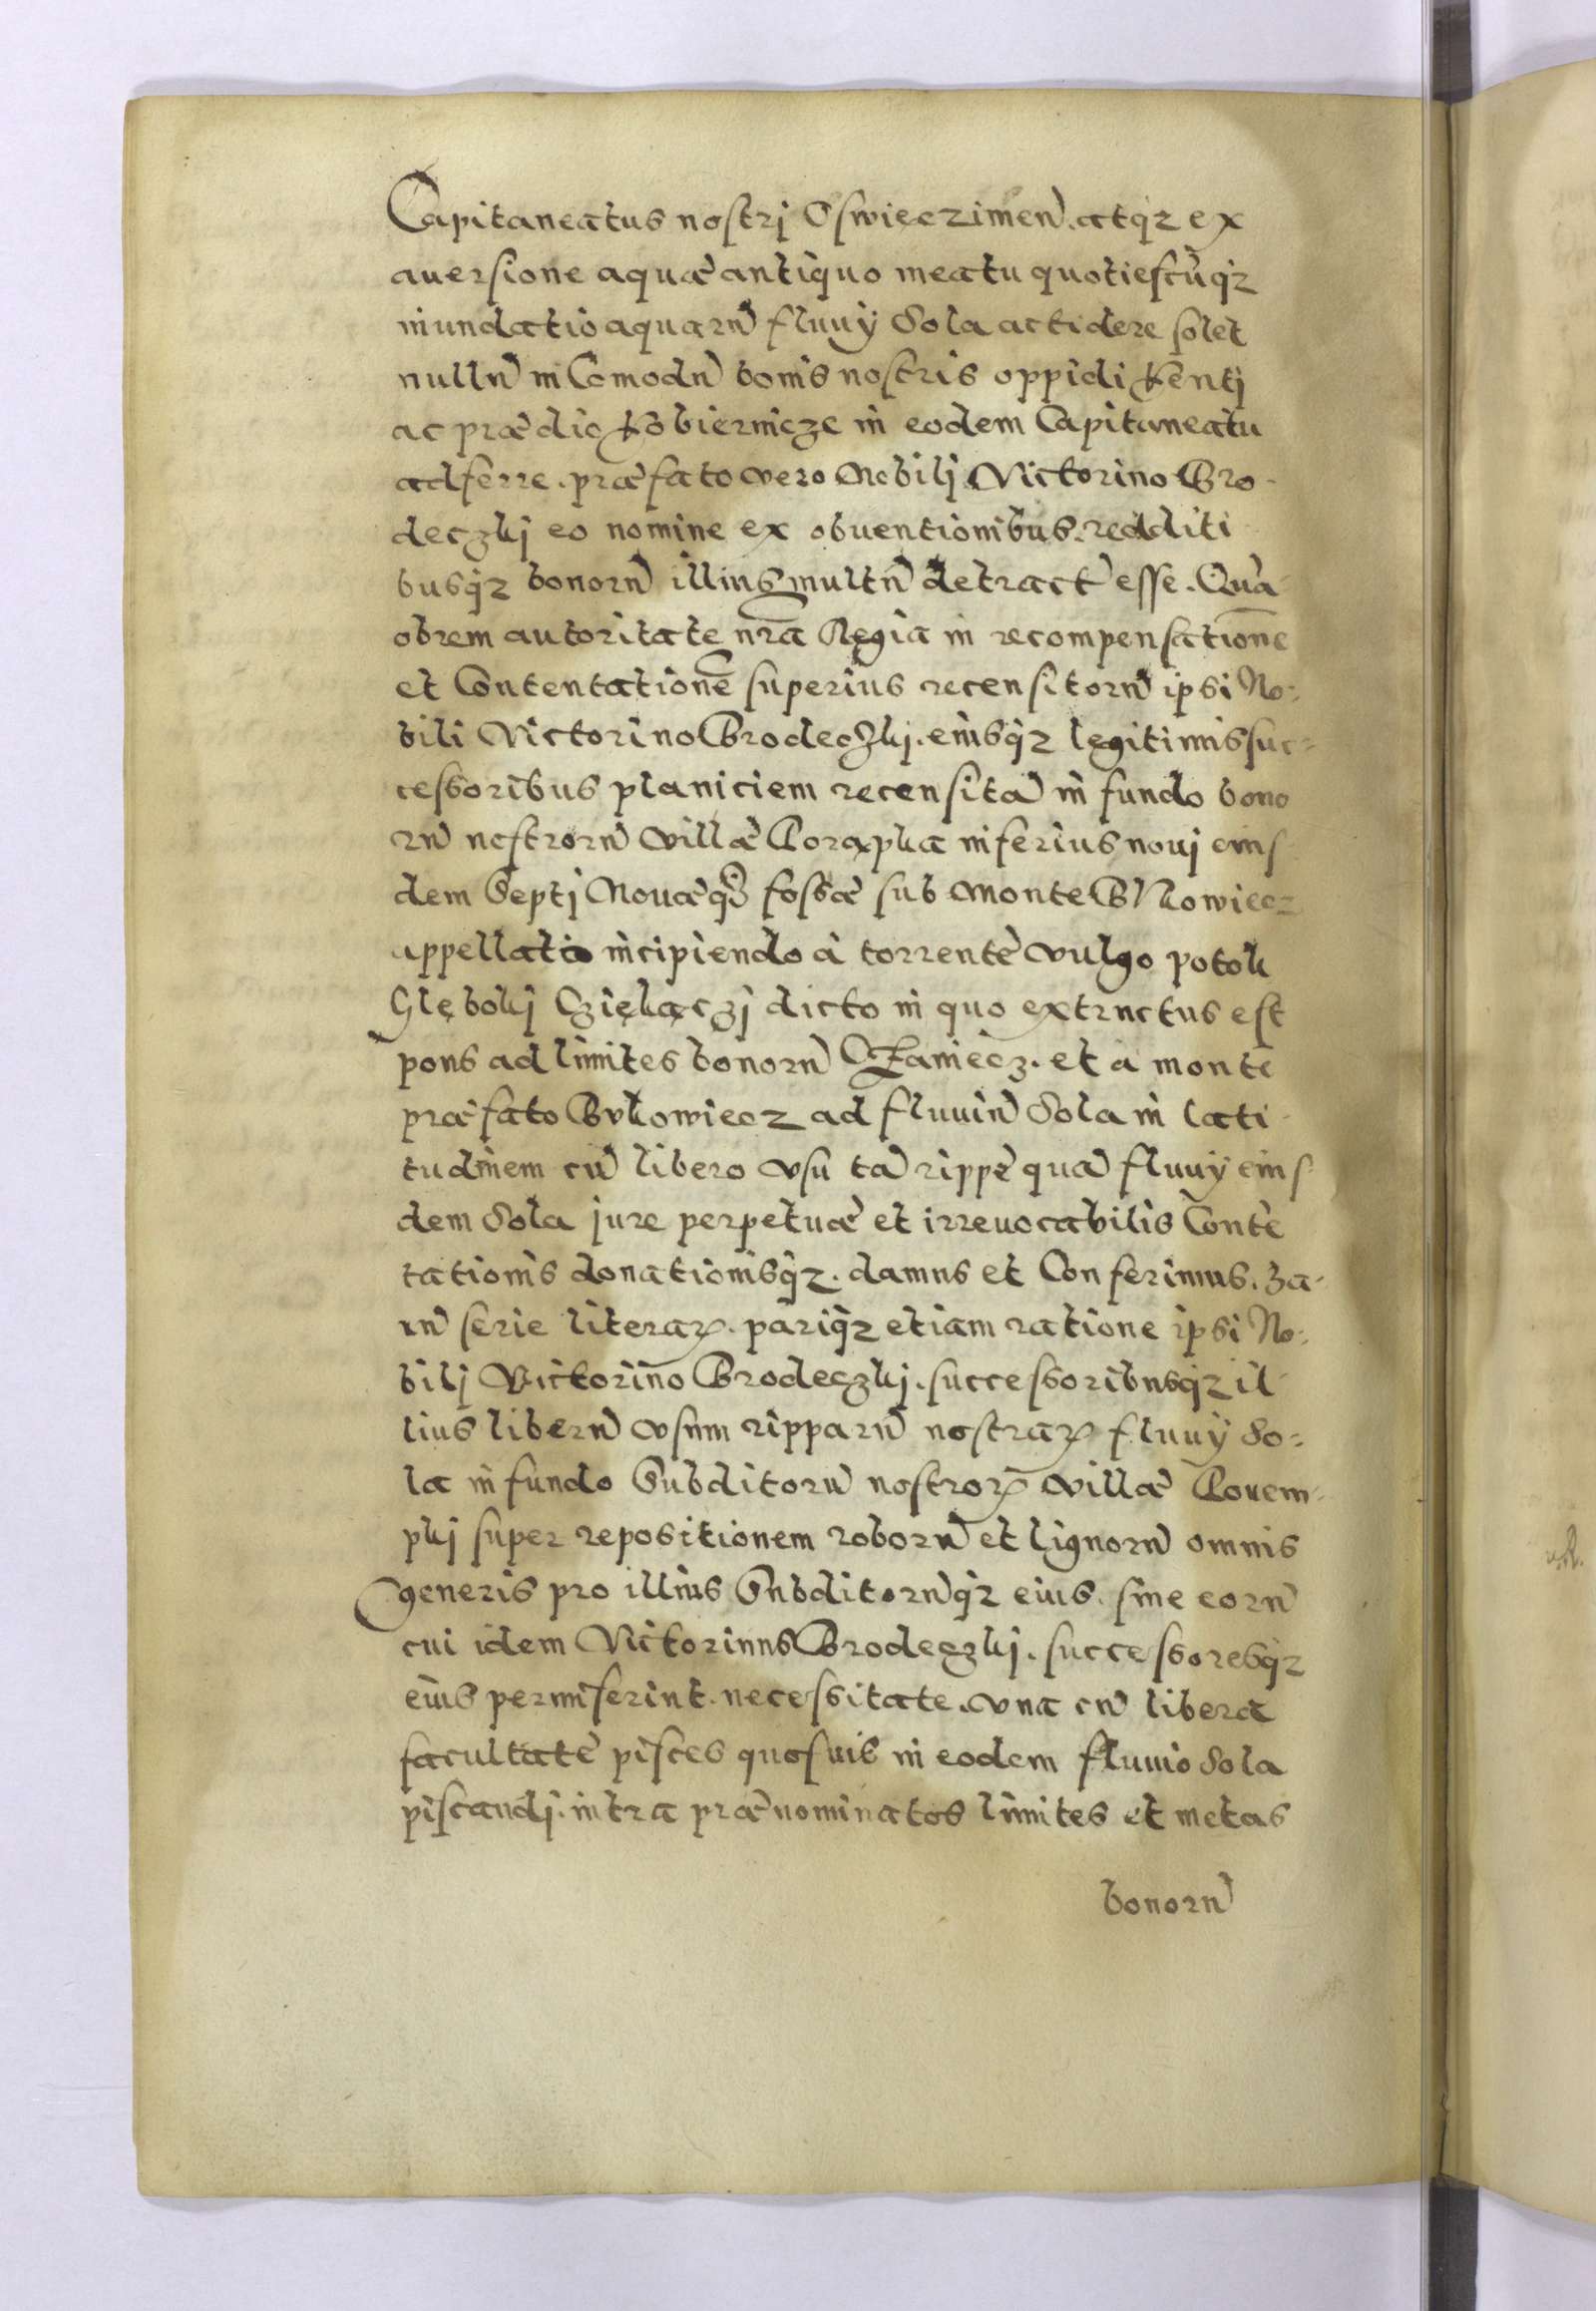 Capitaneatus nostrj Oswieczimen̄. atq̨ ex
auersione aquæ antiquo meatu quotiescūq̨
inundatio aquarū fluuÿ Sola accidere solet
nullū in Comodū bonis nostris oppidi Kentj
ac prædio Kobiernicze in eodem Capitaneatu
adferre. præfato vero Nobilj Victorino Bro-
deczkj eo nomine ex obuentionibus. redditi
busq̨ bonorū illius multū detract̄ esse. Quā
obrem autoritate nr̄a Regia in recompensationē
et Contentationē superius recensitorū ipsi No-
bili Victorino Brodeczkj. eiusq̨ legitimis suc=
cessoribus planiciem recensitā in fundo bono
rū nostrorū villæ Porąpka inferius noui eius
dem Septj Nouæq̨ fossæ sub monte Bukowiecz
appellato incipiendo à torrente vulgo potok
Głębokj Cziękączj dicto in quo extructus est
pons ad limites bonorū Czaniecz. et à monte
præfato Bukowiecz ad fluuiū Sola in lati-
tudinem cū libero vsu tā rippæ quā fluuÿ eius
dem Sola jure perpetuæ et irreuocabilis Contē
tationis donationisq̨. damus et Conferimus. ha-
rū serie literaꝝ. pariq̨ etiam ratione ipsi No-
bilj Victorino Brodeczkj. successoribusq̨ il-
lius liberū vsum ripparū nostraꝝ fluuÿ So=
la in fundo Subditorū nostroꝝ villæ Porem-
pkj super repositionem roborū et lignorū omnis
generis pro illius Subditorūq̨ eius. siue eorū
cui idem Victorinus Brodeczkj. successoresq̨
eius permiserint. necessitate. vna cū libera
facultate pisces quosuis in eodem fluuio Sola
piscandj. intra prænominatos limites et metas
bonorū